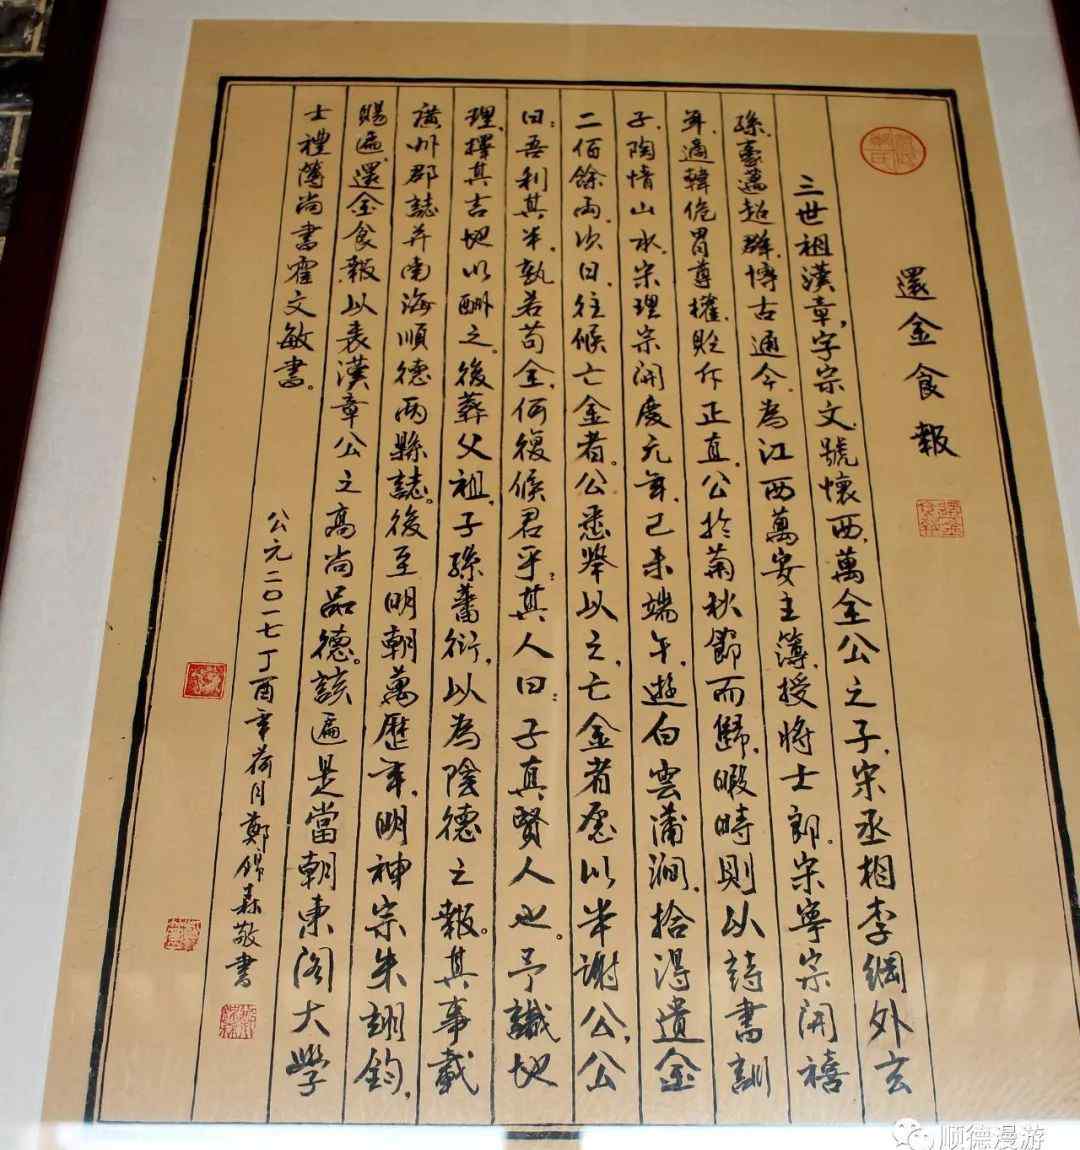 還金食報
三世祖漢章，字宗文，號懷西，萬全公之子，宋丞相李綱外玄
孫，豪邁超群，博古通今，為江西萬安主簿，授將士郎。宋寧宗開禧
年，過韓侂冑專權，貶斥正直，公於菊秋節而歸，暇時則以詩書訓
子，陶情山水。宋理宗開慶元年，己未端午，遊白雲蒲澗，拾得遺金
二佰餘両，次日，往候亡金者。公悉舉以之，亡金者愿以半謝公，公
曰：吾利其半，孰若苟全，何復候君乎？其人曰：子真賢人也。予識地
理，擇其吉地以酬之。後葬父祖，子孫蕃衍，以為陰德之報。其事載
廣州郡誌并南海順德両縣誌。後至明朝萬歷年，明神宗朱翊鈞，
賜匾，還金食報，以表漢章公之高尚品德。該匾是當朝東閣大學
士禮簿尚書霍文敏書。
公元二〇一七丁酉年荷月鄭錦森敬書
顺德漫游